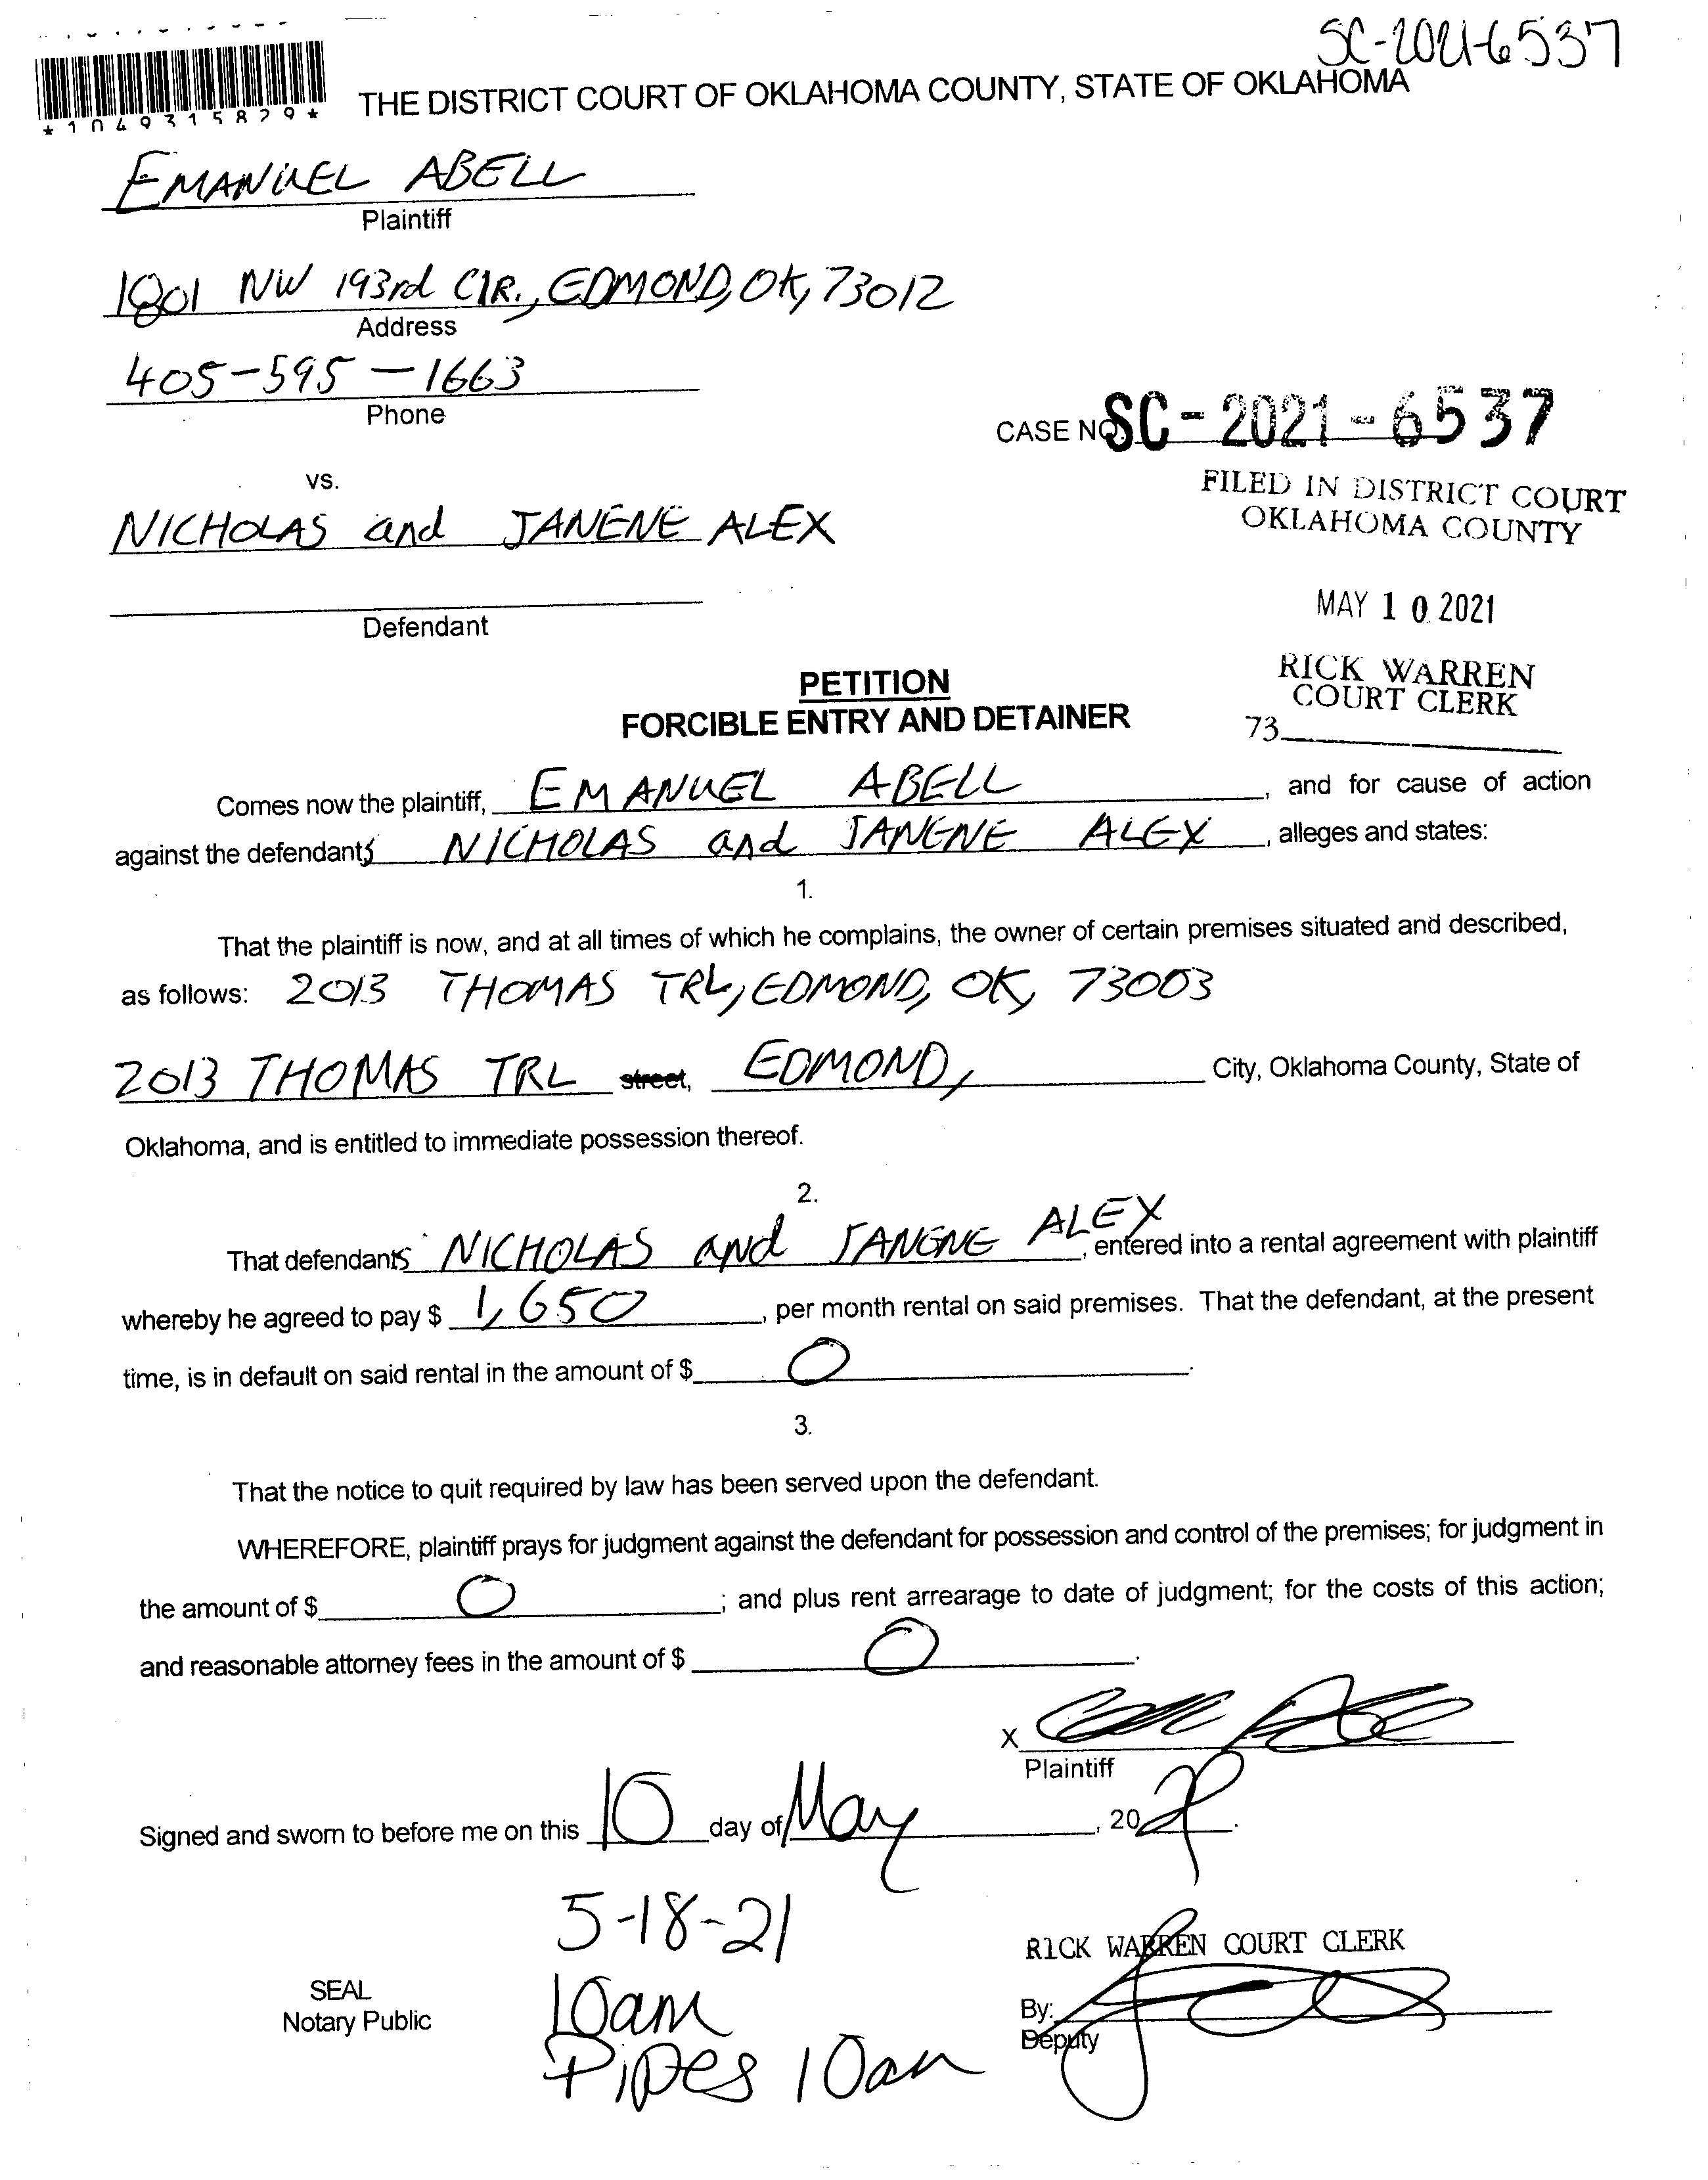 SC-2021-6537
*1049315829*
THE DISTRICT COURT OF OKLAHOMA COUNTY, STATE OF OKLAHOMA
EMANUEL ABELL
Plaintiff
1801 NW 193rd CIR., EDMOND, OK, 73012
Address
405-595-1663
Phone
CASE NO. SC-2021-6537
vs.
FILED IN DISTRICT COURT
OKLAHOMA COUNTY
NICHOLAS and JANENE ALEX
MAY 10 2021
Defendant
RICK WARREN
COURT CLERK
73
PETITION
FORCIBLE ENTRY AND DETAINER
Comes now the plaintiff, EMANUEL ABELL, and for cause of action
against the defendants NICHOLAS and JANENE ALEX, alleges and states:
1.
That the plaintiff is now, and at all times of which he complains, the owner of certain premises situated and described,
as follows: 2013 THOMAS TRL, EDMOND, OK, 73003
2013 THOMAS TRL street, EDMOND, City, Oklahoma County, State of
Oklahoma, and is entitled to immediate possession thereof.
2.
That defendants NICHOLAS and JANENE ALEX, entered into a rental agreement with plaintiff
whereby he agreed to pay $ 1,650, per month rental on said premises. That the defendant, at the present
time, is in default on said rental in the amount of $ 0.
3.
That the notice to quit required by law has been served upon the defendant.
WHEREFORE, plaintiff prays for judgment against the defendant for possession and control of the premises; for judgment in
the amount of $ 0; and plus rent arrearage to date of judgment; for the costs of this action;
and reasonable attorney fees in the amount of $ 0.
X
Plaintiff
Signed and sworn to before me on this 10 day of May, 2021.
5-18-21
RICK WARREN COURT CLERK
SEAL
Notary Public
10am
By:
Deputy
Pipes 10am